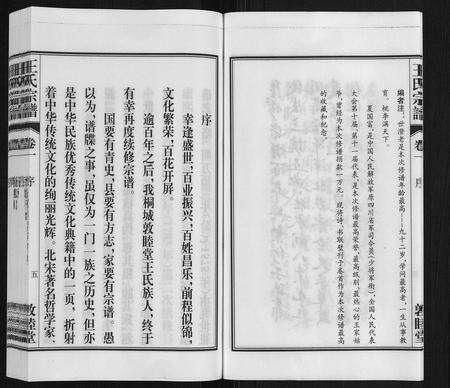 王氏宗譜
卷一
序
敦睦堂
编者注：一世澄老是本次修谱年龄最高——九十二岁，学问最高老，一生从事教
育，桃李满天下。
夏国富，是中国人民解放军原四川省军司令员（少将军衔），全国人民代表
大会第十届、第十一届代表，是本次修谱最高荣誉、最高级别、最热心的王家姑
爷，曾经为本次修谱捐款一万元。现将诗、书联壁刊于卷首作为本次修谱最高
的收藏和纪念。
序
幸逢盛世，百业振兴，百姓昌乐，前程似锦，
文化繁荣，百花开屏。
逾百年之后，我桐城敦睦堂王氏族人，终于
有幸再度续修宗谱。
国要有青史，县要有方志，家要有宗谱。愚
以为，谱牒之事，虽仅为一门一族之历史，但亦
是中华民族优秀传统文化典籍中的一页，折射
着中华传统文化的绚丽光辉。北宋著名哲学家、
王氏宗譜
卷一
序
五
敦睦堂